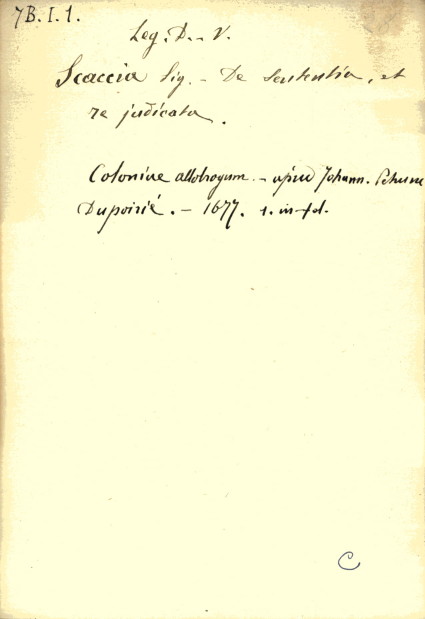 7B. I. 1.
Leg. D. - V.
Scaccia Sig. - De sententia, et
re judicata.
Coloniae allobrogum. - apud Johann.
Dupoirié. - 1677. 1. in-fol.
C